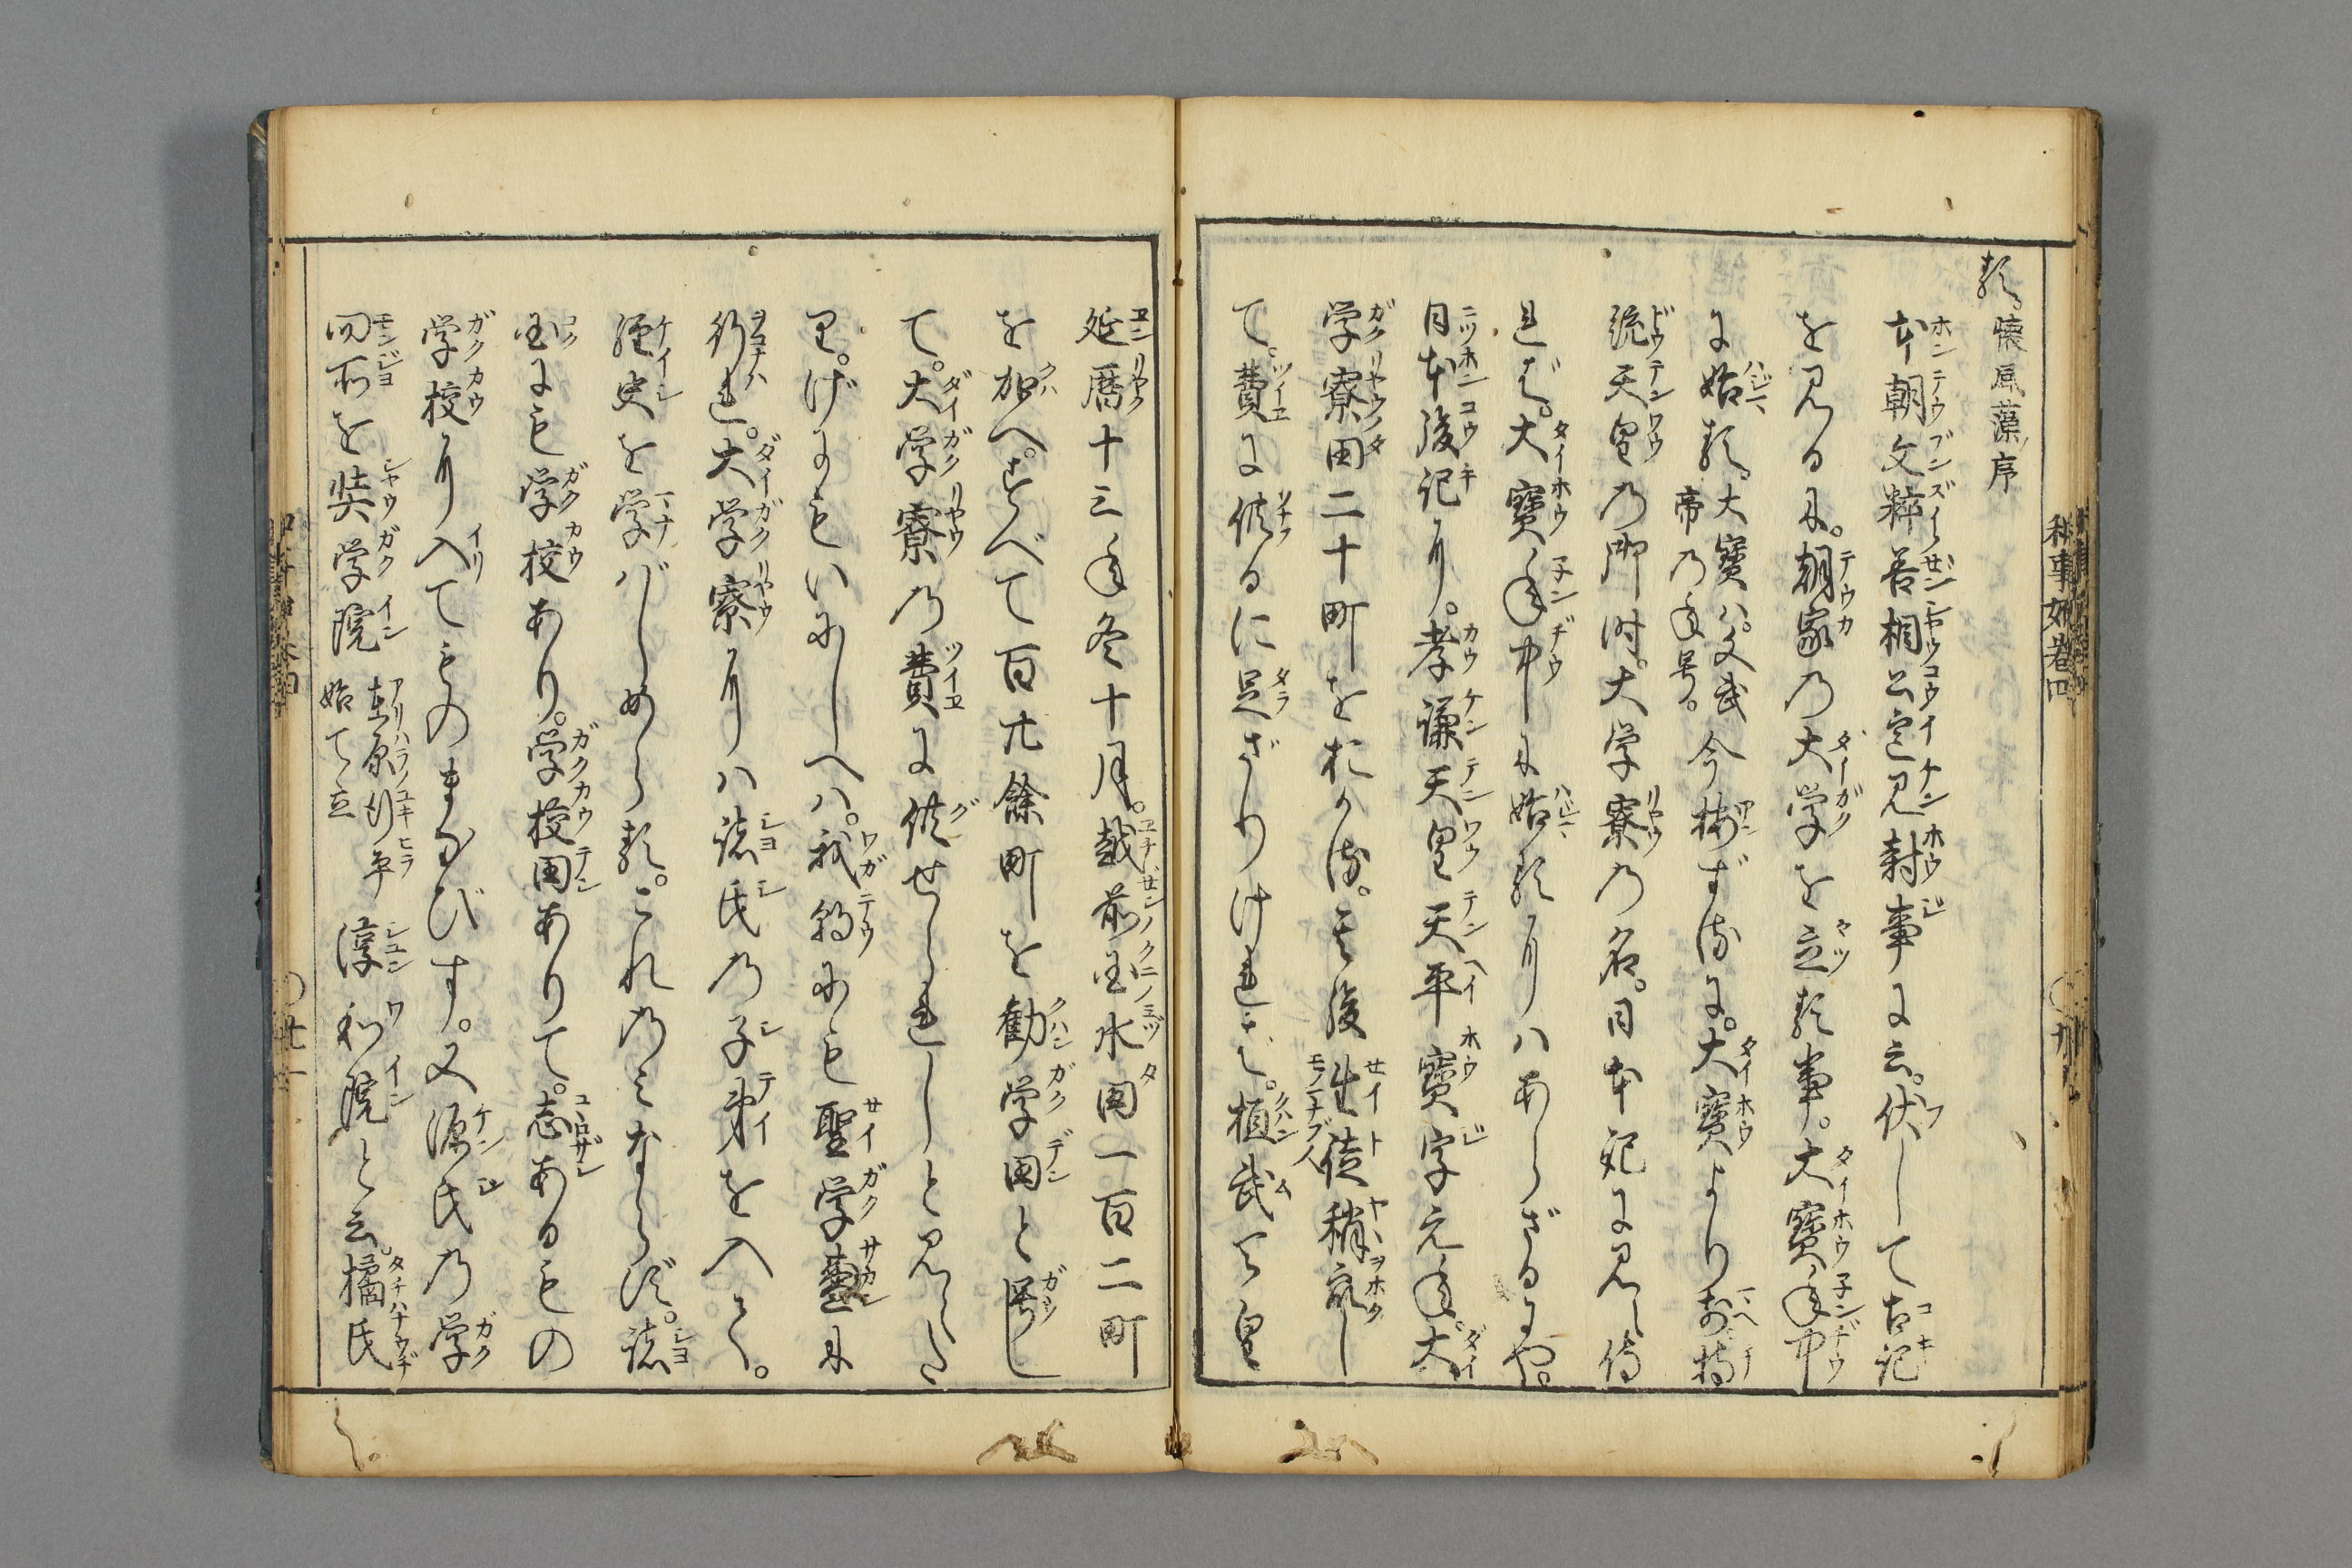 る。懐風藻ノ序
本朝文粋善相公意見封事に云。伏して古記
を見るに。朝家の大学を立る事。大寶年中
に始る。大寶ハ文武帝の年号。今按ずるに。大寶より前持
統天皇の御時。大学寮の名。日本紀に見え侍
れば。大寶年中に始るにハあらざるにや。
日本後記に。孝謙天皇天平寶字元年。大
学寮田二十町をおかる。其後生徒稍衆し
て。費に供るに足ざりければ。桓武天皇
延暦十三年冬十月。越前国水田一百二町
を加へ。すべて百廿餘町を勸学田と号し
て。大学寮の費に供せられしと見えた
り。げにもいにしへハ。我朝にも聖学盛に
行れ。大学寮にハ諸氏の子弟を入て。
經史を学ばしめらる。これのみならず。諸
国にも学校あり。学校田ありて。志あるもの
学校に入てものまなびす。又源氏の学
問所を奨学院 在原ノ行平始て立 淳和院と云。橘氏